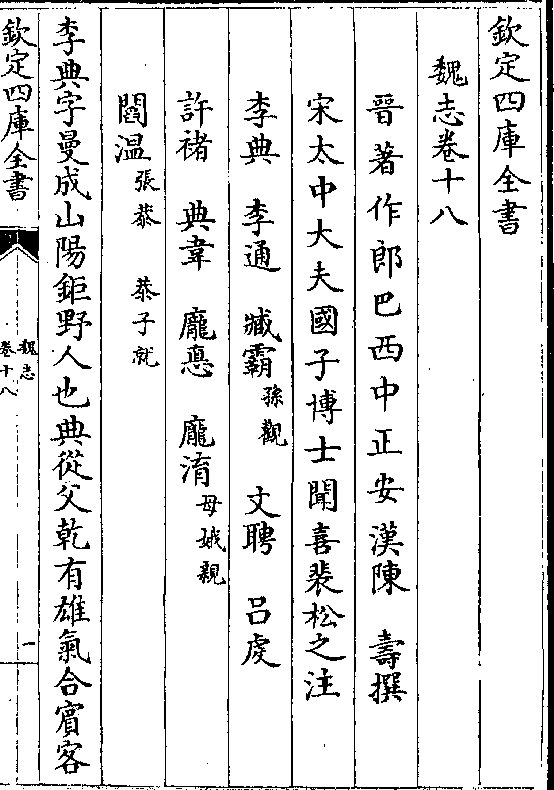 欽定四庫全書
魏志卷十八
晉著作郎巴西中正安漢陳　壽撰
宋太中大夫國子博士聞喜裴松之注
李典　李通　臧霸孫觀　文聘　呂虔
許褚　典韋　龐悳　龐淯母娥親
閻溫張恭　恭子就
李典字曼成山陽鉅野人也典從父乾有雄氣合賓客
欽定四庫全書
魏志
卷十八
一